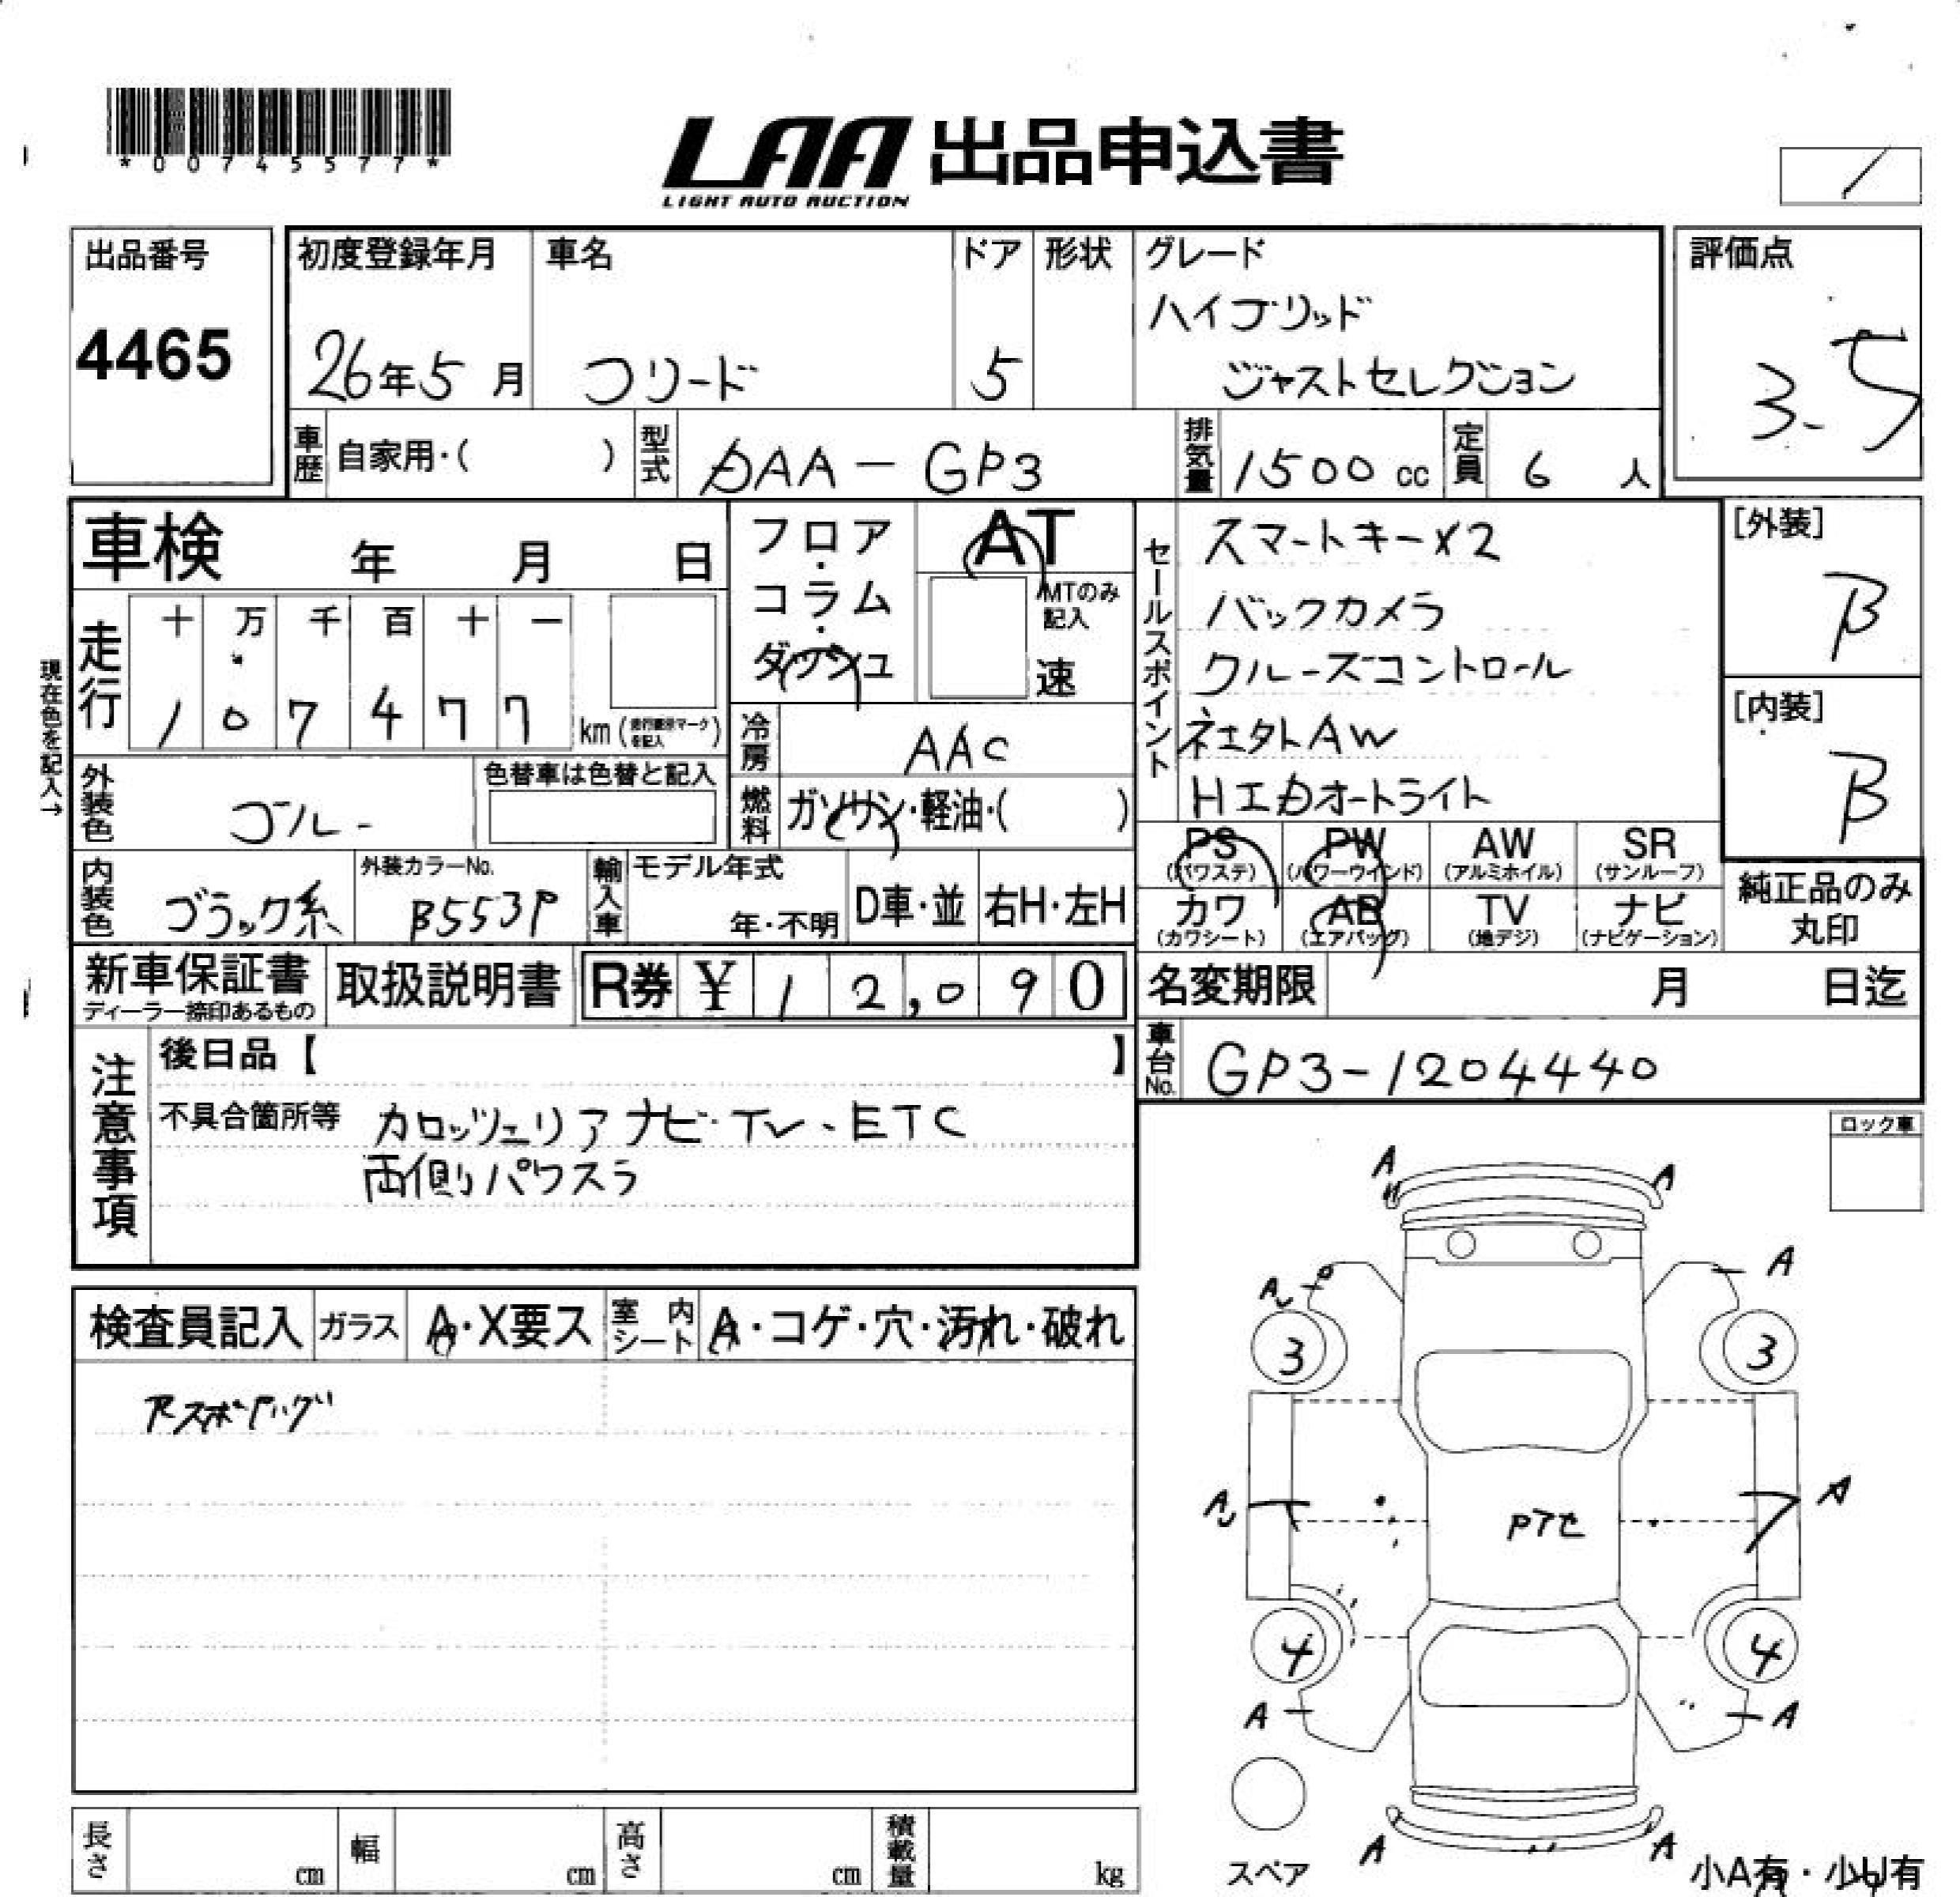 *00745577*
LAA 出品申込書
LIGHT AUTO AUCTION
出品番号
4465
初度登録年月
26年5月
車名
フリード
ドア
5
形状
グレード
ハイブリッド
ジャストセレクション
評価点
3.5
車歴
自家用・( )
型式
DAA-GP3
排気量
1500cc
定員
6人
車検 年 月 日
フロア・コラム・ダッシュ
AT
MTのみ記入
速
セールスポイント
スマートキー×2
バックカメラ
クルーズコントロール
HIDオートライト
[外装]
B
[内装]
B
現在色を記入→
走行
十 万 千 百 十 一
1 0 7 4 7 7
km
を記入
冷房
AAC
外装色
ブルー
色替車は色替と記入
燃料
ガソリン・軽油・( )
PS
(パワステ)
PW
(パワーウインド)
AW
(アルミホイル)
SR
(サンルーフ)
カワ
(カワシート)
AB
(エアバッグ)
TV
(地デジ)
ナビ
(ナビゲーション)
純正品のみ
丸印
内装色
ブラック系
外装カラーNo.
B553P
輸入車
モデル年式
年・不明
D車・並
右H・左H
新車保証書
ディーラー捺印あるもの
取扱説明書
R券 ¥ 12,090
名変期限 月 日迄
車台No.
GP3-1204440
注意事項
後日品【 】
不具合箇所等
カロッツェリアナビ・TV・ETC
両側パワスラ
ロック車
検査員記入
ガラス
A・X要ス
室内シート
A・コゲ・穴・汚れ・破れ
A
A
A
A
3
3
A
A
4
4
A
A
A
A
スペア
小A有・小U有
長さ cm
幅 cm
高さ cm
積載量 kg